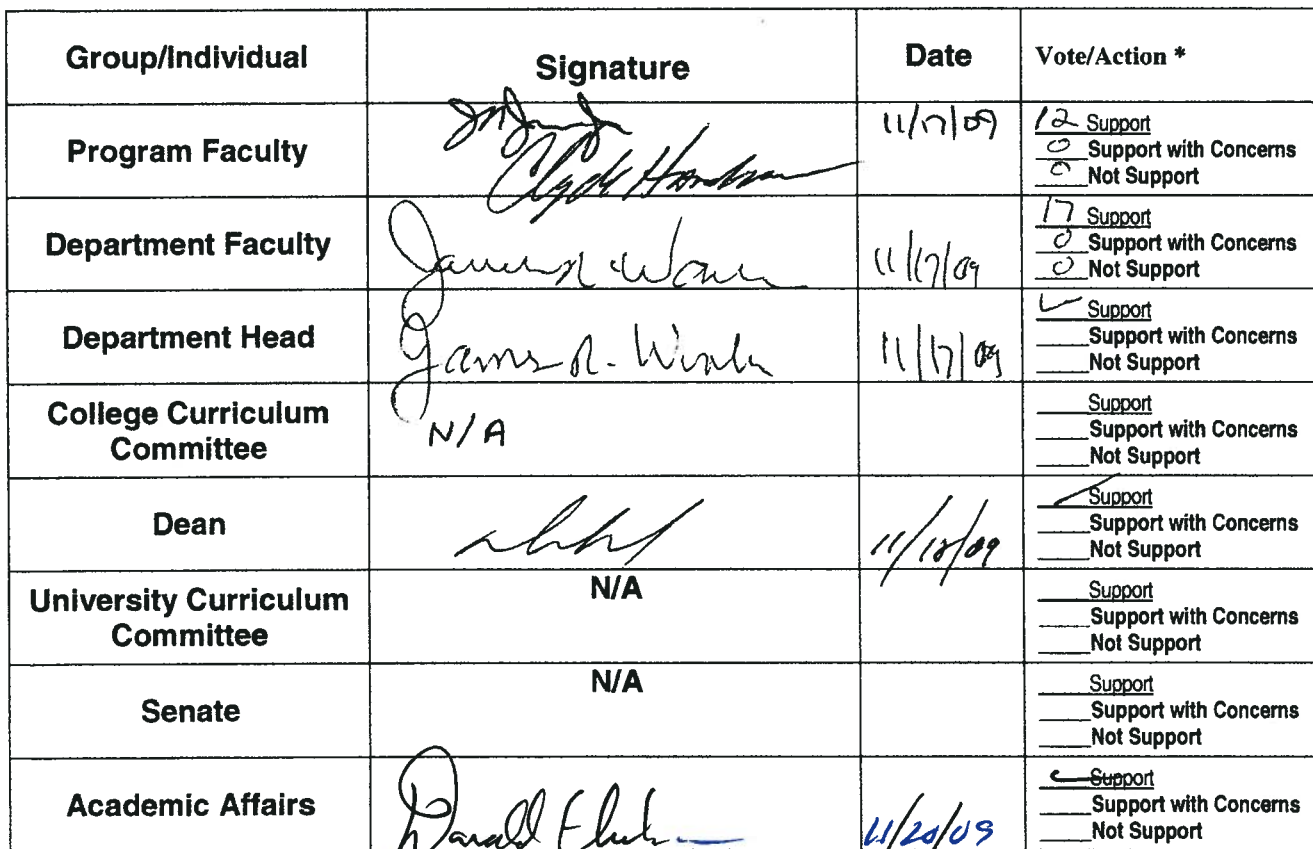 Group/Individual Signature Date Vote/Action *
Program Faculty 11/17/09 12 Support
0 Support with Concerns
0 Not Support
Clyde
Department Faculty James R. 11/17/09 17 Support
0 Support with Concerns
0 Not Support
Department Head James R. 11/17/09 ✓ Support
Support with Concerns
Not Support
College Curriculum
Committee N/A Support
Support with Concerns
Not Support
Dean 11/18/09 Support
Support with Concerns
Not Support
University Curriculum
Committee N/A Support
Support with Concerns
Not Support
Senate N/A Support
Support with Concerns
Not Support
Academic Affairs 11/20/09 Support
Support with Concerns
Not Support